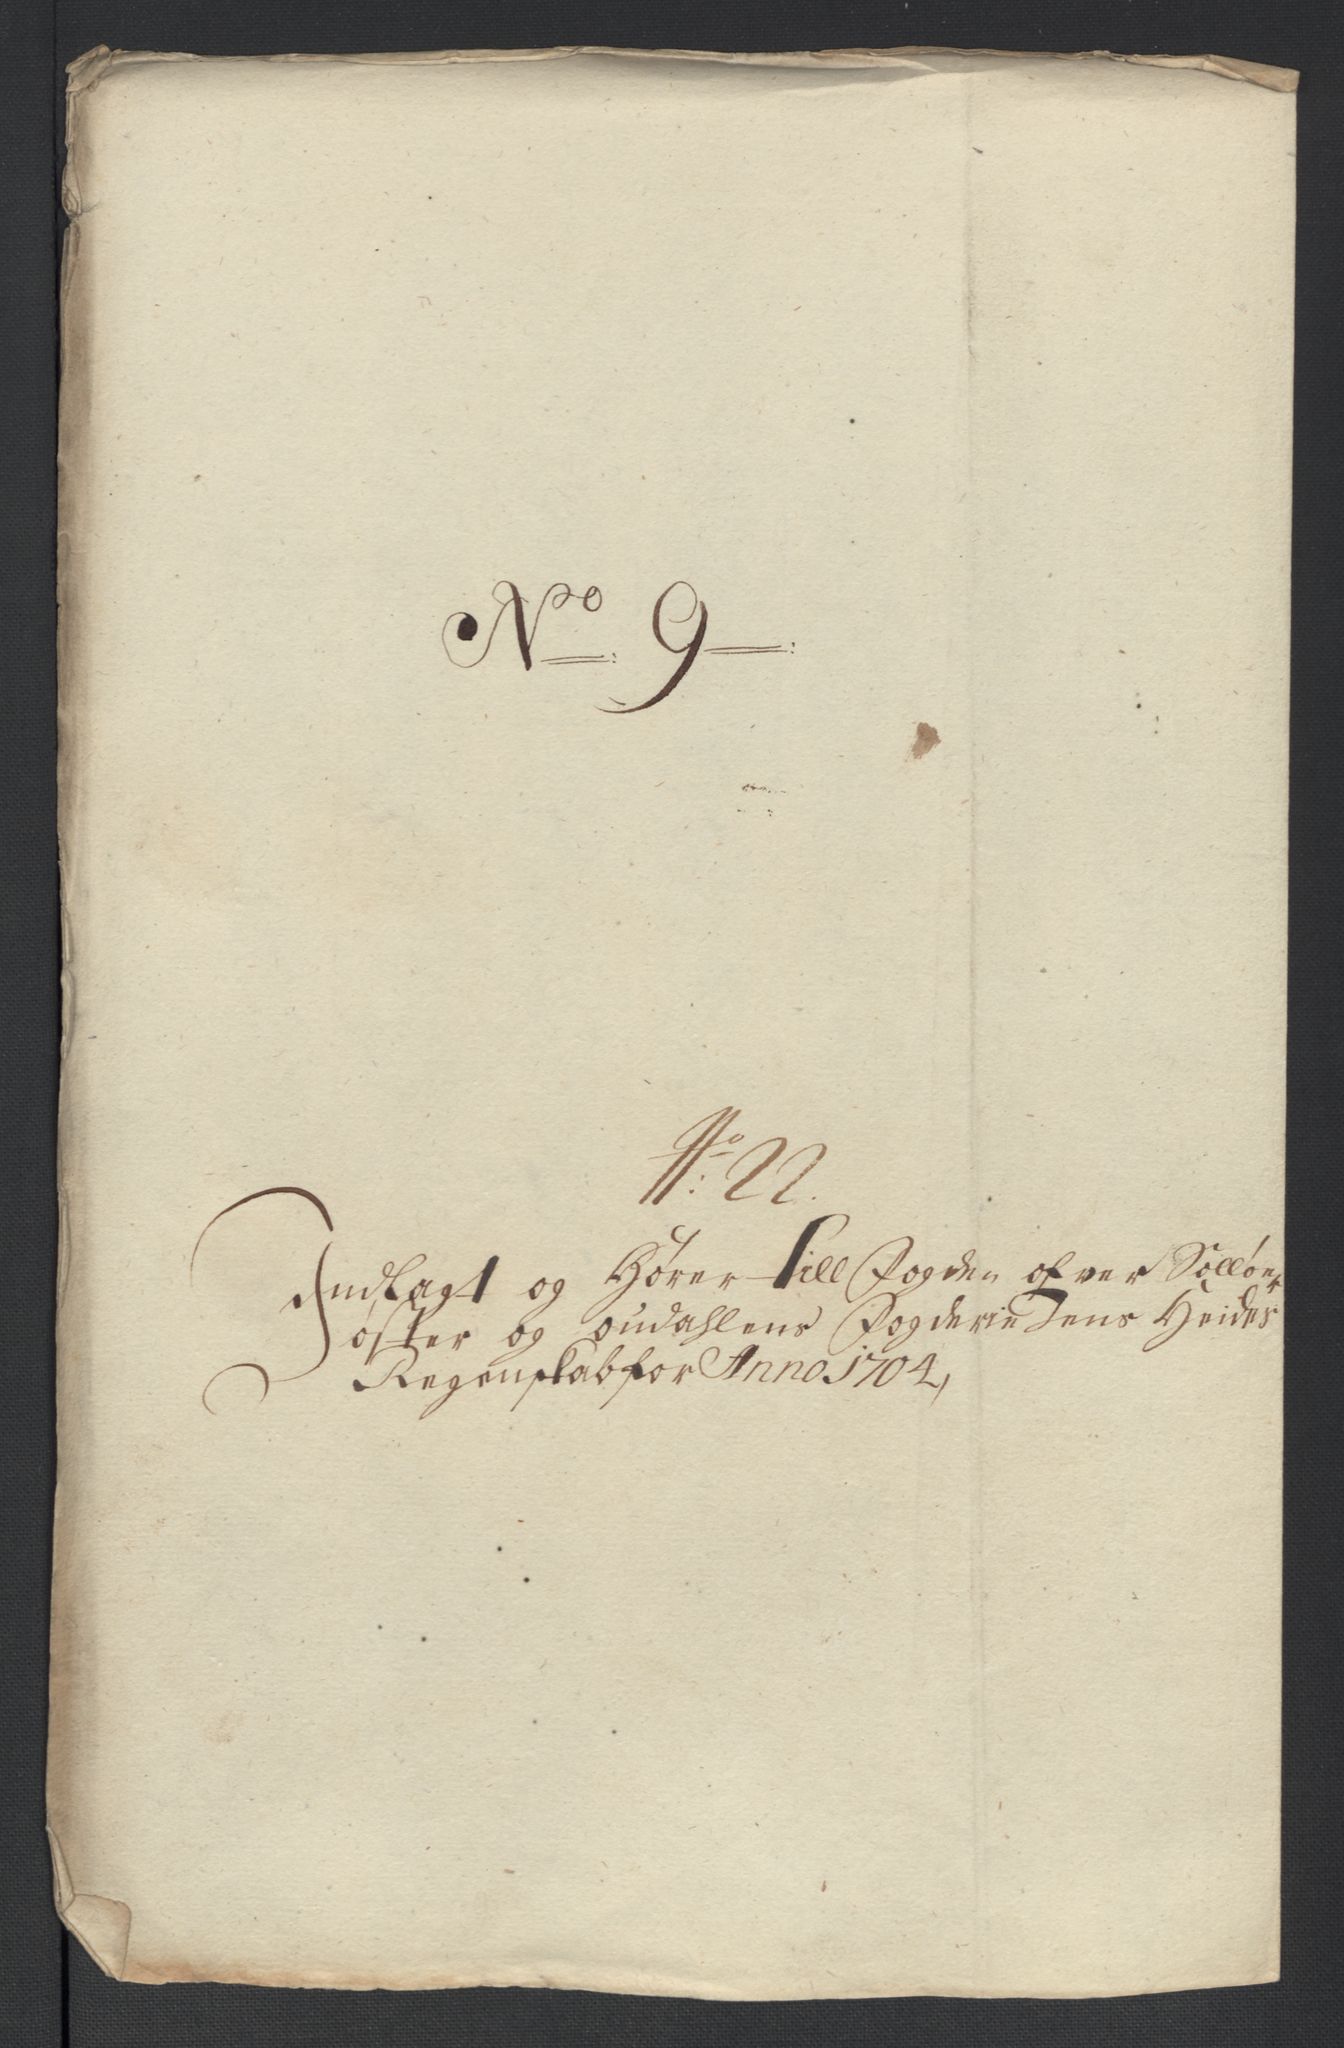 No 9
No: 22.
Indlagt og Hører till Fogden ofver Solløer
øster og oudahlens Fogderie Jens Heides
Regenskab for Anno 1704,